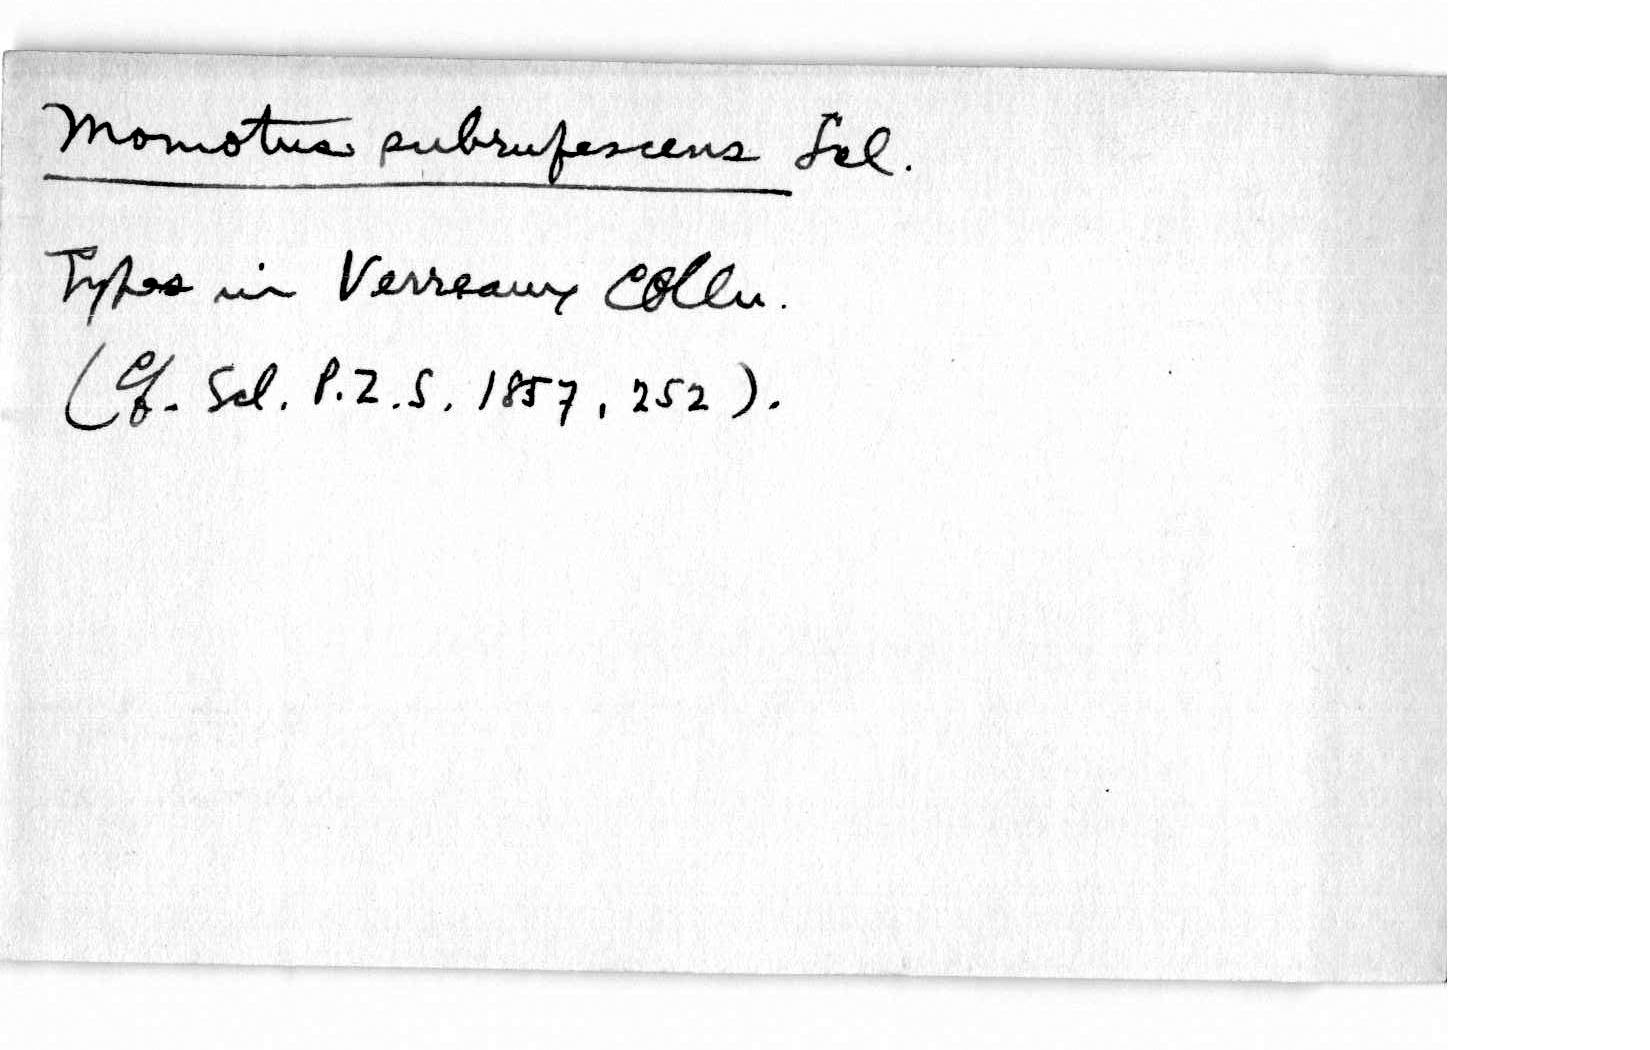 Momotus subrufescens Scl.
Types in Verreaux Colln.
(Cf. Scl. P.Z.S. 1857, 252).